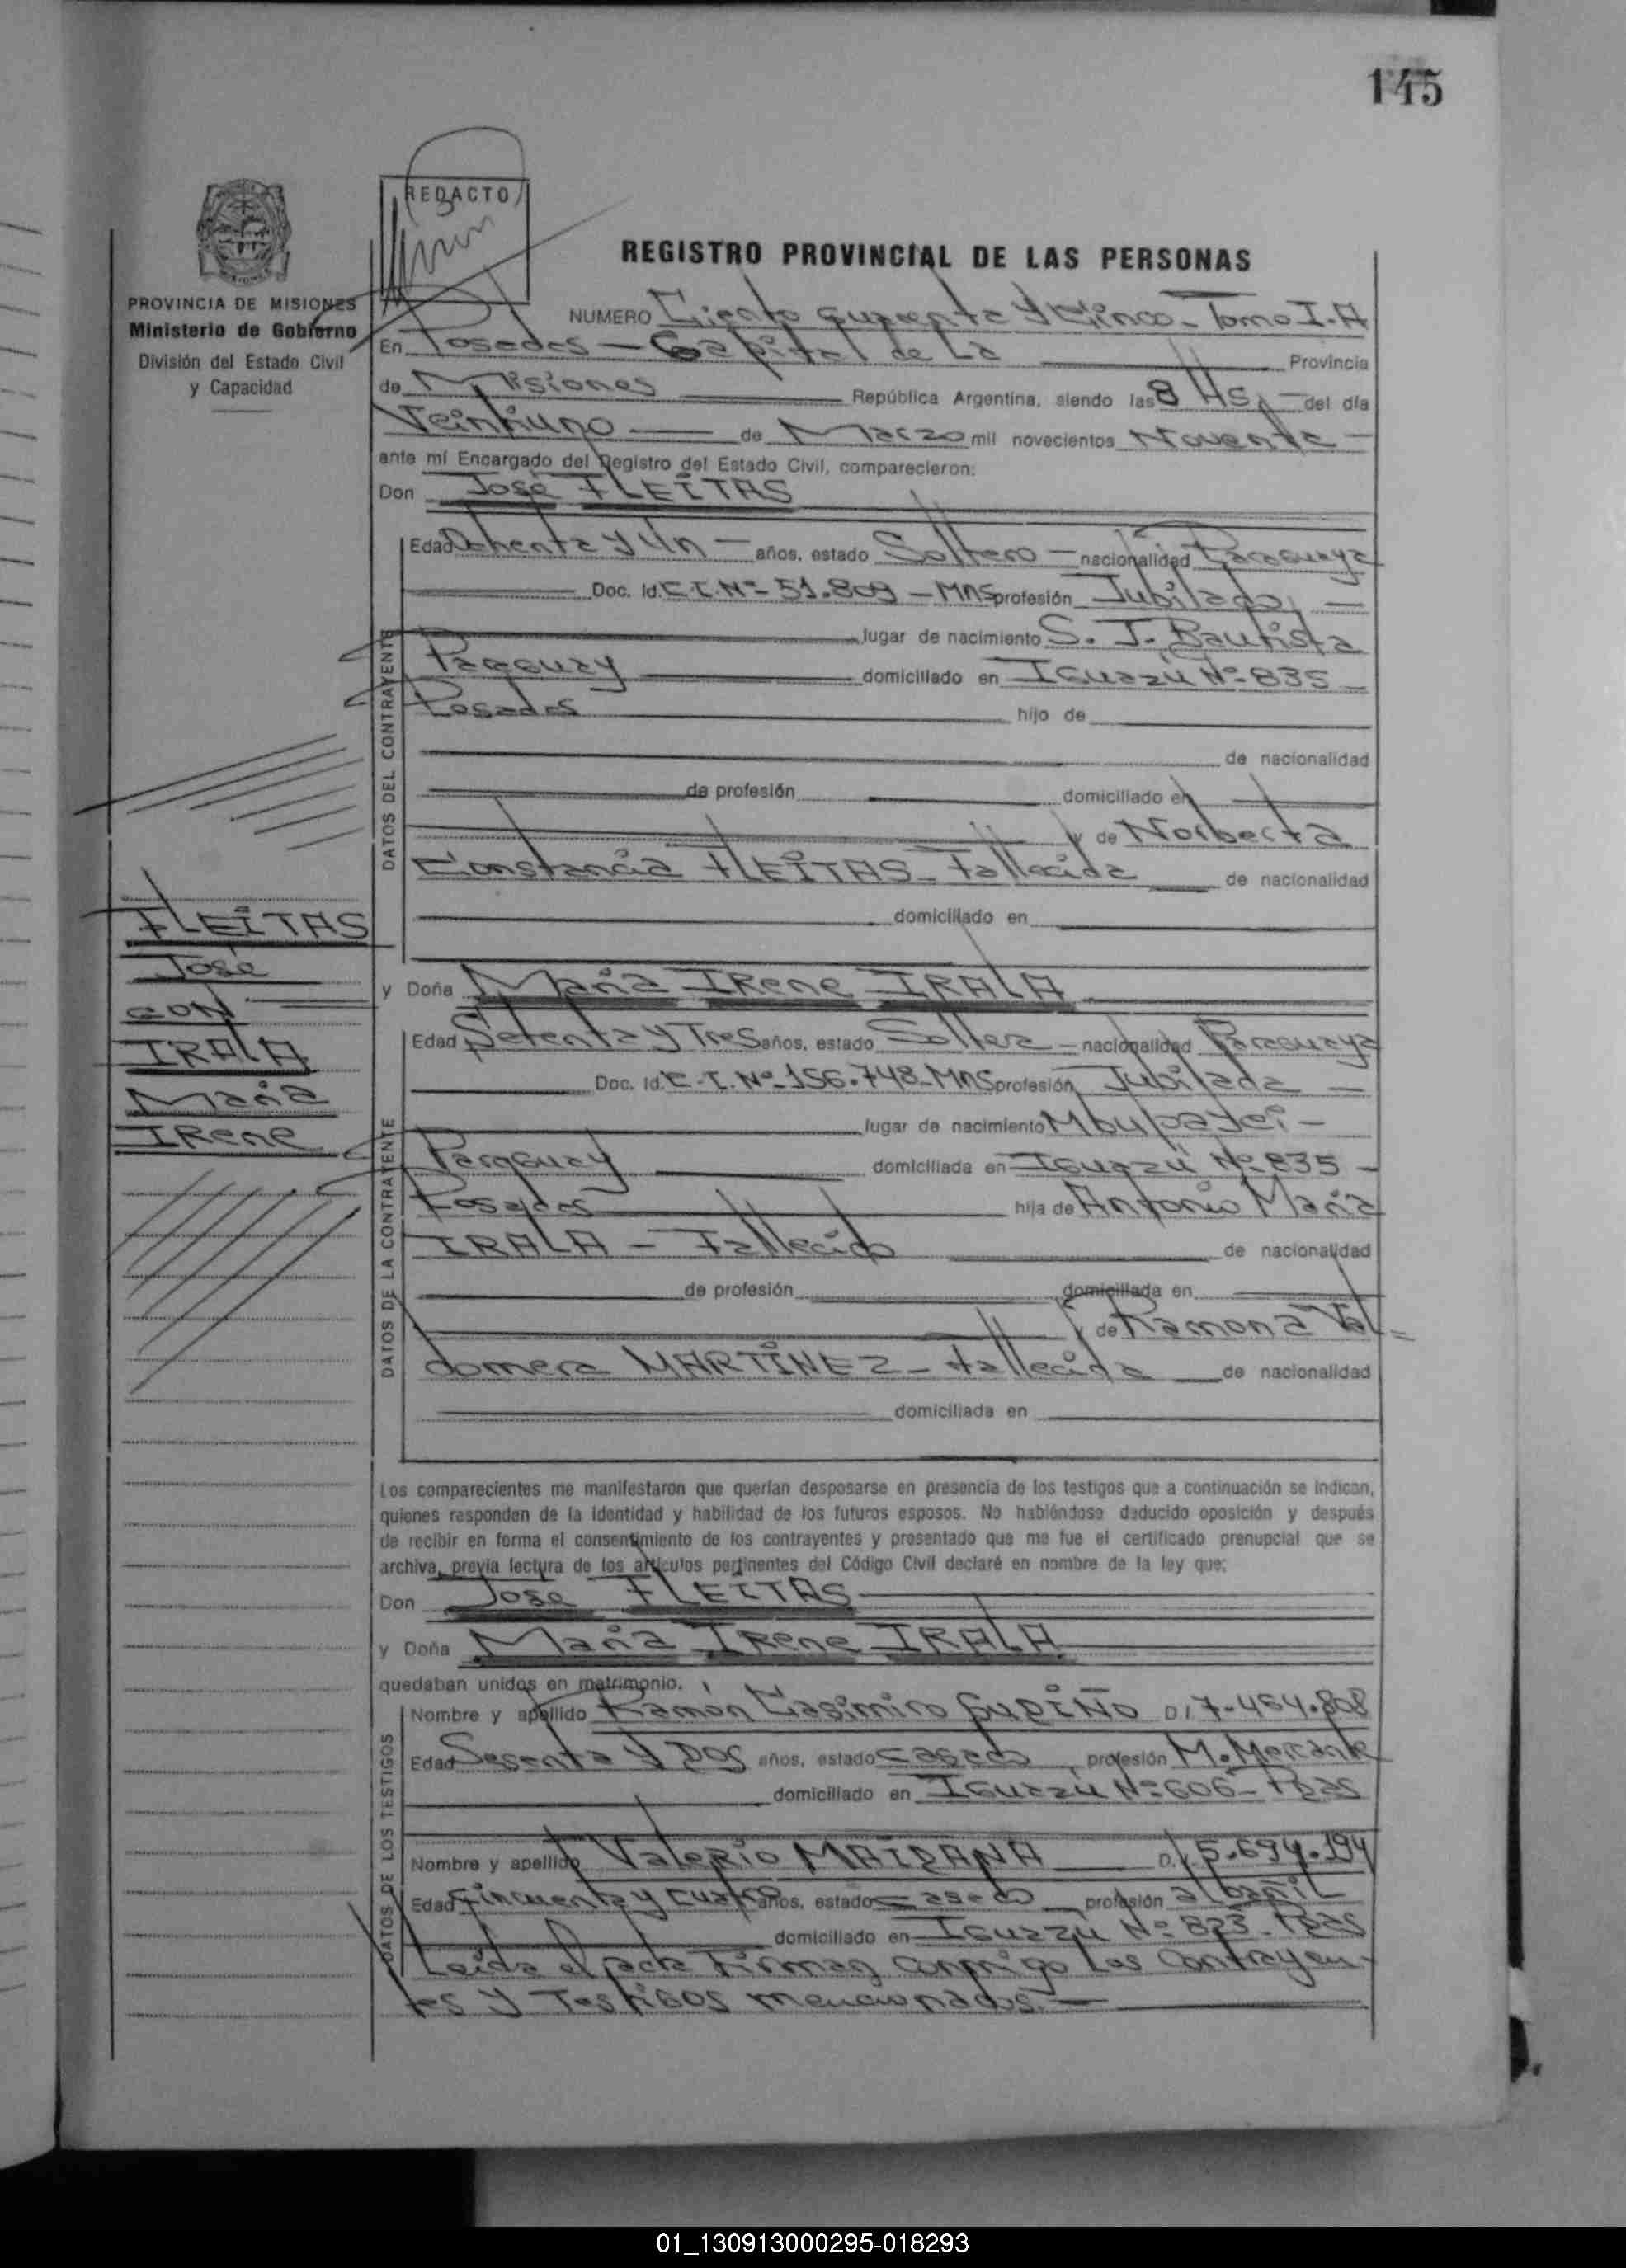 145
REDACTO
REGISTRO PROVINCIAL DE LAS PERSONAS
PROVINCIA DE MISIONES
Ministerio de Gobierno
División del Estado Civil
y Capacidad
NUMERO Ciento cuarenta y Cinco - Tomo I-A
En Posadas - Capital de La Provincia
de Misiones República Argentina, siendo las 8 Hs. del día
Veintiuno de Marzo mil novecientos Noventa
ante mí Encargado del Registro del Estado Civil, comparecieron:
Don José FLEITAS
DATOS DEL CONTRAYENTE
Edad Ochenta y Un años, estado Soltero nacionalidad Paraguaya
Doc. Id. C.I. Nº 51.809 - MNS profesión Jubilado
lugar de nacimiento S. J. Bautista
Paraguay domiciliado en Iguazú Nº 835
Posadas hijo de
de nacionalidad
de profesión domiciliado en
y de Norberta
Constancia FLEITAS - Fallecida de nacionalidad
domiciliado en
FLEITAS
José
CON
IRALA
María
IRene
y Doña María IRene IRALA
DATOS DE LA CONTRAYENTE
Edad Setenta y Tres años, estado Soltera nacionalidad Paraguaya
Doc. Id. C.I. Nº 156.748 - MNS profesión Jubilada
lugar de nacimiento
Paraguay domiciliada en Iguazú Nº 835
Posadas hija de Antonio María
IRALA - Fallecido de nacionalidad
de profesión domiciliada en
y de Ramona Val=
domera MARTÍNEZ - Fallecida de nacionalidad
domiciliada en
Los comparecientes me manifestaron que querían desposarse en presencia de los testigos que a continuación se indican,
quienes responden de la identidad y habilidad de los futuros esposos. No habiéndose deducido oposición y después
de recibir en forma el consentimiento de los contrayentes y presentado que me fue el certificado prenupcial que se
archiva, previa lectura de los artículos pertinentes del Código Civil declaré en nombre de la ley que:
Don José FLEITAS
y Doña María IRene IRALA
quedaban unidos en matrimonio.
DATOS DE LOS TESTIGOS
Nombre y apellido Ramón Casimiro GUDIÑO D.I 7.484.808
Edad Sesenta y Dos años, estado casado, profesión M. Mercante
domiciliado en Iguazú Nº 606 - Pdas
Nombre y apellido Valerio MAIDANA D.I. 5.694.194
Edad Cincuenta y cuatro años, estado casado profesión albañil
domiciliado en Iguazú Nº 823 - Pdas
Leída el acta Firman conmigo Los Contrayen-
tes y Testigos mencionados.
01_130913000295-018293